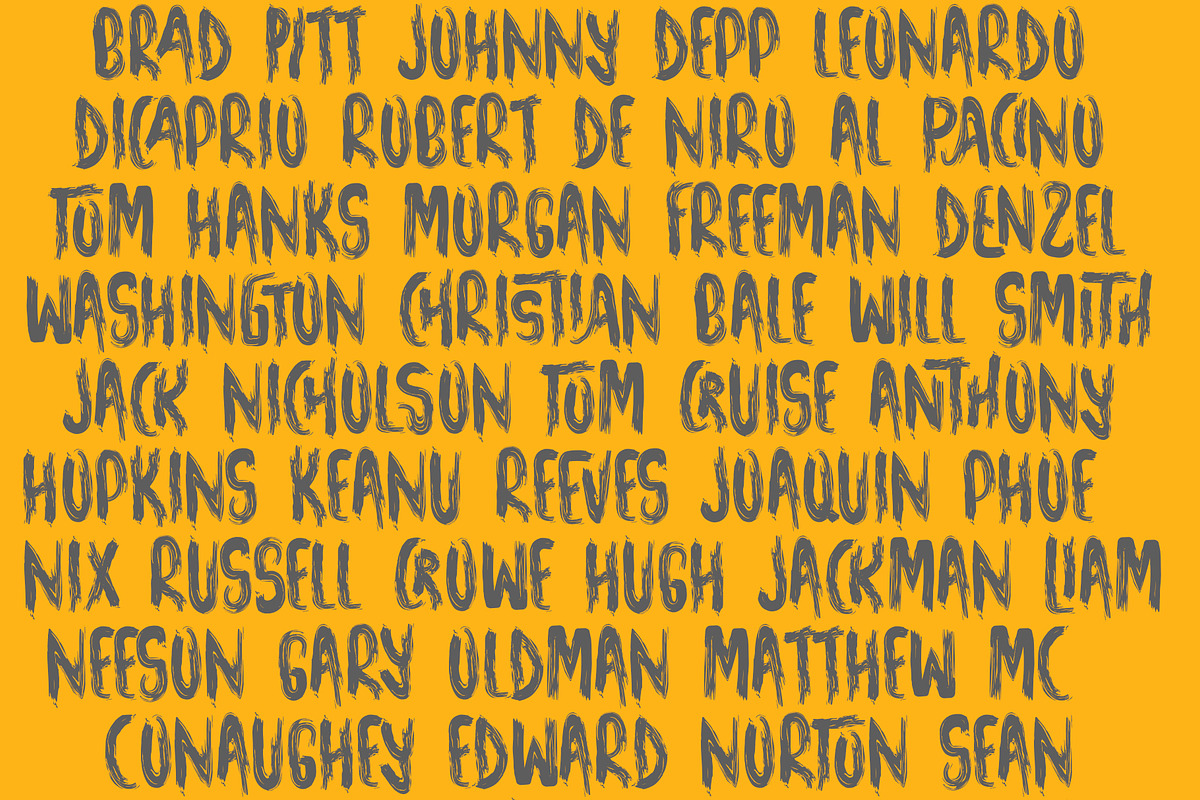 BRAD PITT JOHNNY DEPP LEONARDO
DICAPRIO ROBERT DE NIRO AL PACINO
TOM HANKS MORGAN FREEMAN DENZEL
WASHINGTON CHRISTIAN BALE WILL SMITH
JACK NICHOLSON TOM CRUISE ANTHONY
HOPKINS KEANU REEVES JOAQUIN PHOE
NIX RUSSELL CROWE HUGH JACKMAN LIAM
NEESON GARY OLDMAN MATTHEW MC
CONAUGHEY EDWARD NORTON SEAN